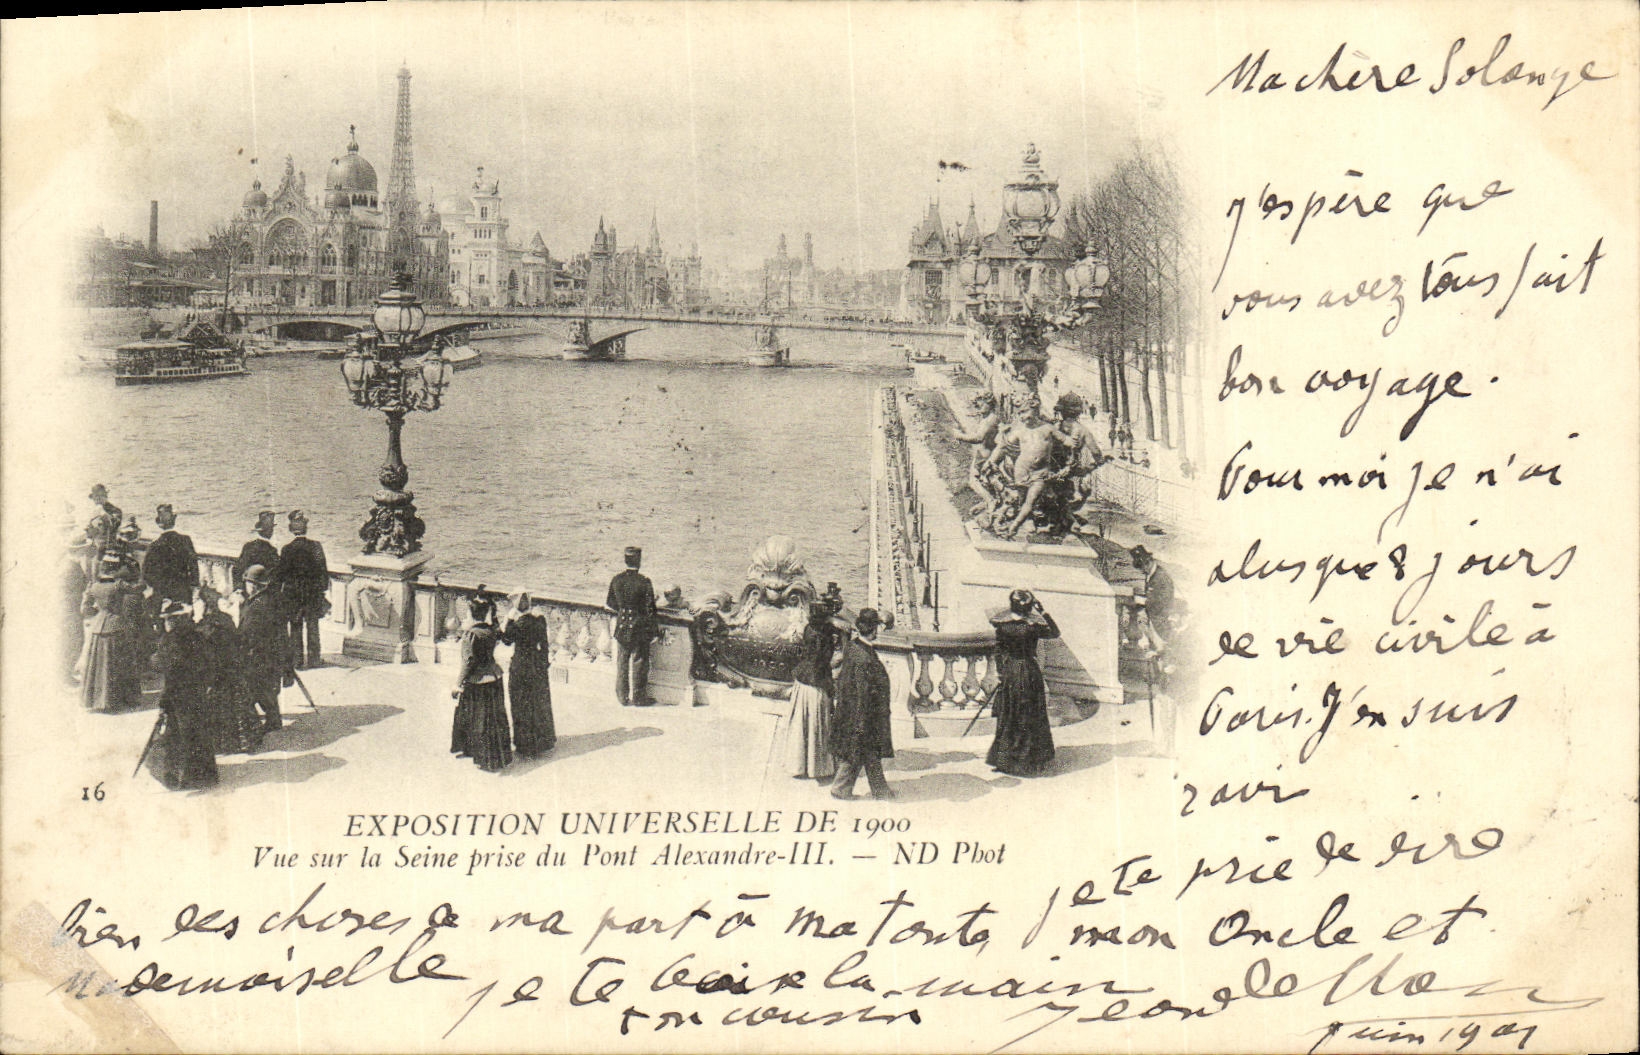 Ma chère Solange
J'espère que
vous avez tous fait
bon voyage.
Pour moi je n'ai
plus que 8 jours
de vie civile à
Paris. J'en suis
ravi
je te prie de dire
bien des choses de ma part à ma tante, mon oncle et
Mademoiselle je te baise la main
ton cousin Jean de
Juin 1901
16
EXPOSITION UNIVERSELLE DE 1900
Vue sur la Seine prise du Pont Alexandre-III. — ND Phot